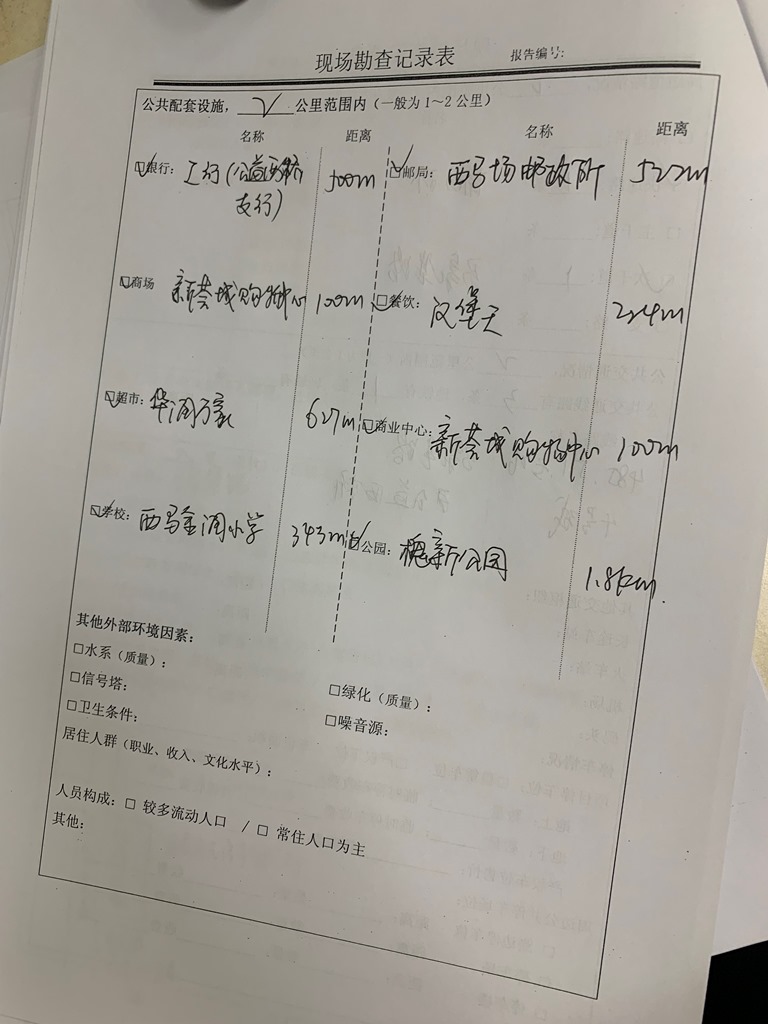 现场勘查记录表 报告编号:
公共配套设施，√公里范围内（一般为1～2公里）
名称 距离 名称 距离
☑银行: 工行(公益西桥支行) 500m ☑邮局: 西马场邮政所 522m
☑商场 新荟城购物中心 100m ☑餐饮: 汉堡王 224m
☑超市: 华润万家 627m ☑商业中心: 新荟城购物中心 100m
☑学校: 西马金润小学 343m ☑公园: 槐新公园 1.8km.
其他外部环境因素:
□水系（质量）:
□信号塔: □绿化（质量）:
□卫生条件: □噪音源:
居住人群（职业、收入、文化水平）:
人员构成: □ 较多流动人口 / □ 常住人口为主
其他: